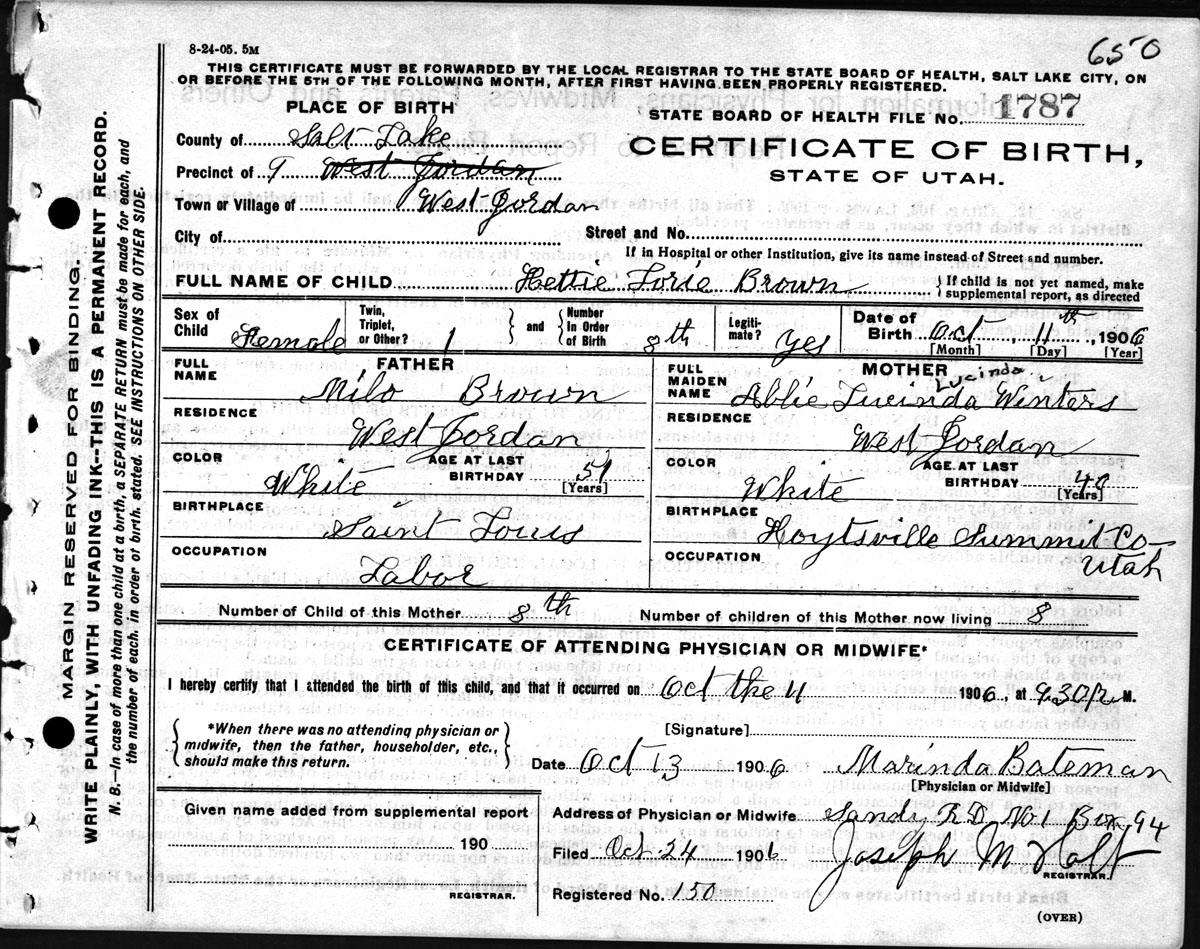 8-24-05. 5M
650
THIS CERTIFICATE MUST BE FORWARDED BY THE LOCAL REGISTRAR TO THE STATE BOARD OF HEALTH, SALT LAKE CITY, ON
OR BEFORE THE 5TH OF THE FOLLOWING MONTH, AFTER FIRST HAVING BEEN PROPERLY REGISTERED.
PLACE OF BIRTH
STATE BOARD OF HEALTH FILE No. 1787
County of Salt Lake
CERTIFICATE OF BIRTH,
STATE OF UTAH.
Precinct of 9 West Jordan
Town or Village of West Jordan
City of Street and No.
If in Hospital or other Institution, give its name instead of Street and number.
FULL NAME OF CHILD Hettie Lorie Brown { If child is not yet named, make supplemental report, as directed
Sex of Child Female
Twin, Triplet, or Other? 1 } and { Number In Order of Birth 8th
Legiti-mate? Yes
Date of Birth Oct 11th, 1906
[Month] [Day] [Year]
FATHER
FULL NAME Milo Brown
RESIDENCE West Jordan
COLOR White AGE AT LAST BIRTHDAY 51
[Years]
BIRTHPLACE Saint Louis
OCCUPATION Labor
MOTHER
Lucinda
FULL MAIDEN NAME Abbie Lucinda Winters
RESIDENCE West Jordan
COLOR White AGE AT LAST BIRTHDAY 40
[Years]
BIRTHPLACE Hoytsville Summit Co
Utah
OCCUPATION
Number of Child of this Mother 8th Number of children of this Mother now living 8
CERTIFICATE OF ATTENDING PHYSICIAN OR MIDWIFE*
I hereby certify that I attended the birth of this child, and that it occurred on Oct the 11 1906, at 9.30 P. M.
{ *When there was no attending physician or
midwife, then the father, householder, etc.,
should make this return. }
[Signature]
Date Oct 13 1906 Marinda Bateman
[Physician or Midwife]
Given name added from supplemental report
190
REGISTRAR.
Address of Physician or Midwife Sandy R.D. No. 1 Box 94
Filed Oct-24 1906 Joseph M Holt
REGISTRAR.
Registered No. 150
(OVER)
MARGIN RESERVED FOR BINDING.
WRITE PLAINLY, WITH UNFADING INK--THIS IS A PERMANENT RECORD.
N. B.—In case of more than one child at a birth, a SEPARATE RETURN must be made for each, and
the number of each, in order of birth, stated. SEE INSTRUCTIONS ON OTHER SIDE.